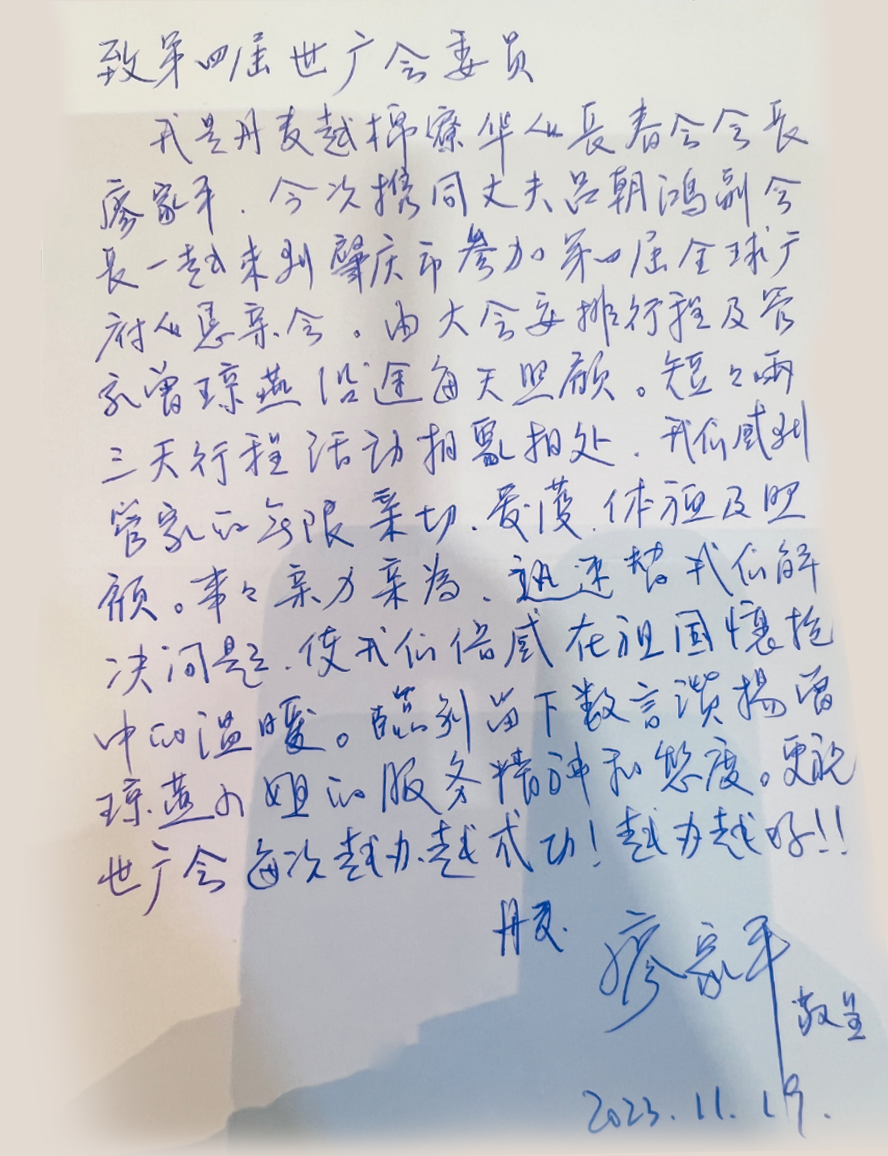 致第四届世广会委员
我是丹麦越棉寮华人長春会会長
廖家平.今次携同丈夫吕朝鴻副会
長一起来到肇庆市参加第四届全球广
府人恳亲会。由大会安排行程及管
家曾琼燕沿途每天照顾。短々兩
三天行程活动相聚相处.我们感到
管家的無限亲切.爱護.体恤及照
顾。事々亲力亲為.迅速替我们解
决问题.使我们倍感在祖国懷抱
中的温暖。臨别留下数言讚揚曾
琼燕小姐的服务精神和態度。更祝
世广会每次越办越成功!越办越好!!
丹麦.
廖家平
敬呈
2023.11.19.